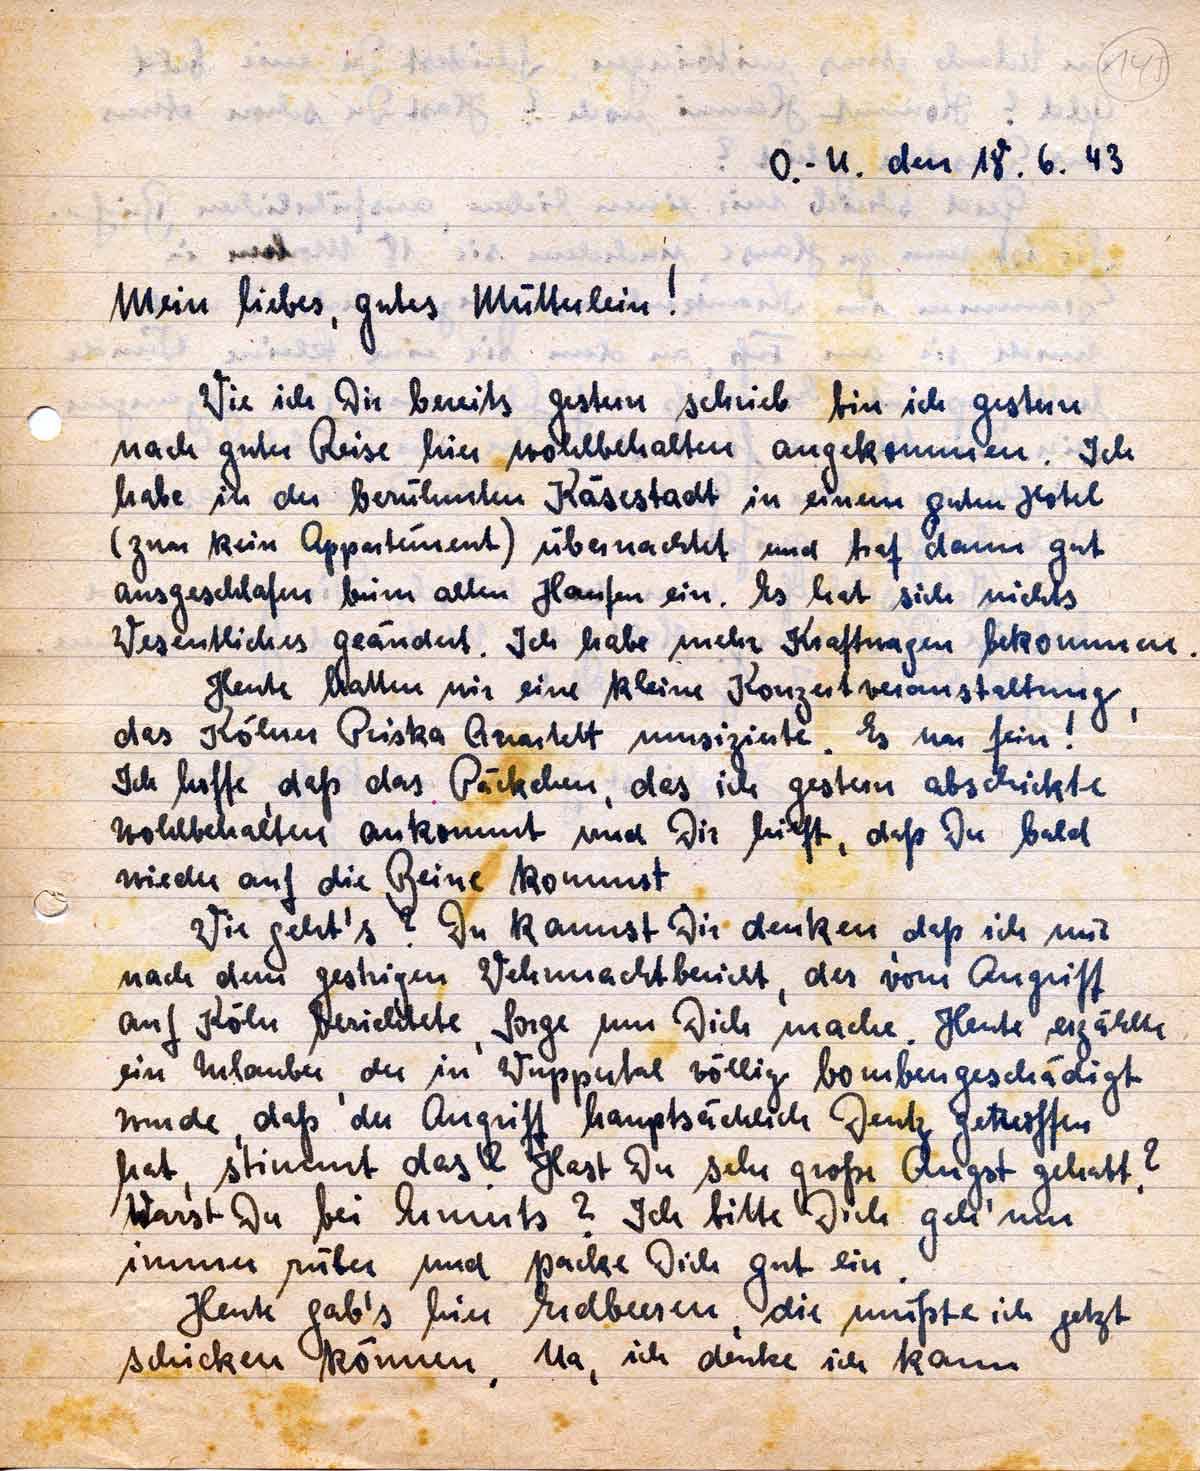 141
O.-U. den 18. 6. 43
Mein liebes, gutes Mütterlein!
Wie ich Dir bereits gestern schrieb bin ich gestern
nach guter Reise hier wohlbehalten angekommen. Ich
habe in der berühmten Käsestadt in einem guten Hotel
(zwar kein Appartement) übernachtet und traf dann gut
ausgeschlafen beim alten Haufen ein. Es hat sich nichts
Wesentliches geändert. Ich habe mehr Kraftwagen bekommen.
Heute hatten wir eine kleine Konzertveranstaltung,
das Kölner Priska Quartett musizierte. Es war fein!
Ich hoffe, daß das Päckchen, das ich gestern abschickte
wohlbehalten ankommt und Dir hilft, daß Du bald
wieder auf die Beine kommst
Wie geht's? Du kannst Dir denken, daß ich mir
nach dem gestrigen Wehrmachtbericht, der vom Angriff
auf Köln berichtete, Sorge um Dich mache. Heute erzählte
ein Urlauber, der in Wuppertal völlig bombengeschädigt
wurde, daß der Angriff hauptsächlich Deutz getroffen
hat, stimmt das? Hast Du sehr große Angst gehabt?
Warst Du bei Emmerts? Ich bitte Dich geh' nur
immer rüber und packe Dich gut ein.
Heute gab's hier Erdbeeren, die müßte ich jetzt
schicken können. Na, ich denke ich kann